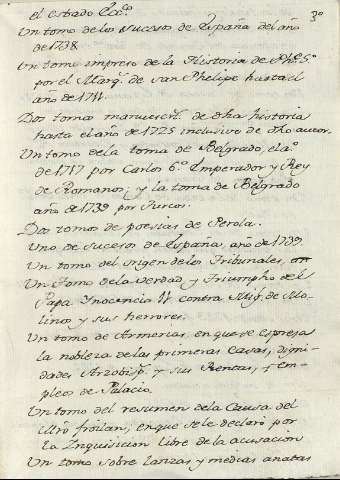 3º
el estado Eccº.
Un tomo de los sucesos de España del año
de 1738.
Un tomo impreso de la Historia de Phe. 5º
por el Marq. de San Phelipe hasta el
año de 1711.
Dos tomos manuscrt. de dha historia
hasta el año de 1725 inclusive de dho autor.
Un tomo de la toma de Belgrado, el aº
de 1717 por Carlos 6º Emperador y Rey
de Romanos; y la toma de Belgrado
año de 1739 por Turcos.
Dos tomos de poesias de Perola.
Uno de Sucesos de España, año de 1739.
Un tomo del origen de los Tribunales,
Un tomo de la verdad y Triumpho del
Papa Inocencio contra Mig. de Mo-
linos y sus herrores.
Un tomo de Armerias, en que se espresa
la nobleza de las primeras Casas, digni-
dades Arzobisp. y sus Rentas, y em-
pleo de Palacio.
Un tomo del resumen de la Causa del
Mrō froilan; en que se le declaró por
la Inquisicion libre de la acusacion
Un tomo sobre lanzas y medias anatas